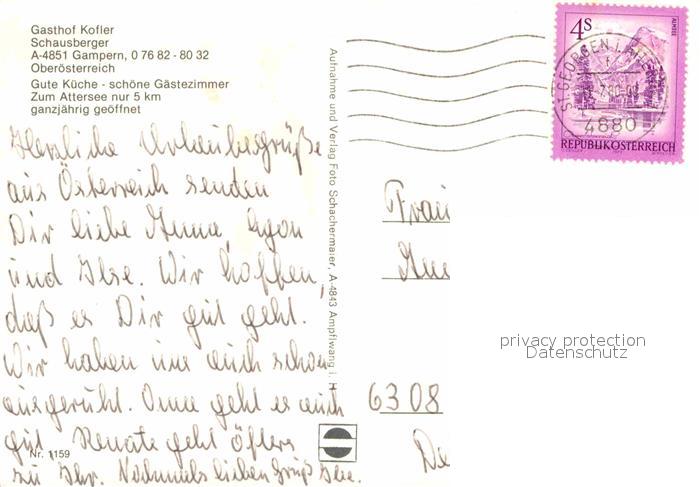 Gasthof Kofler
Schausberger
A-4851 Gampern, 0 76 82 - 80 32
Oberösterreich
Gute Küche - schöne Gästezimmer
Zum Attersee nur 5 km
ganzjährig geöffnet
Herzliche Urlaubsgrüße
aus Österreich senden
Dir liebe Anna, Egon
und Ilse. Wir hoffen,
daß es Dir gut geht.
Wir haben uns auch schon
ausgeruht. Oma geht es auch
gut Renate geht öfters
zu Ihr. Nochmals lieben Gruß Ilse.
Nr. 1159
Aufnahme und Verlag Foto Schachermaier, A-4843 Ampflwang i. H
4S
ALMSEE
REPUBLIK ÖSTERREICH
ST. GEORGEN I. ATTER
7.80
4880
Frau
6308
privacy protection
Datenschutz